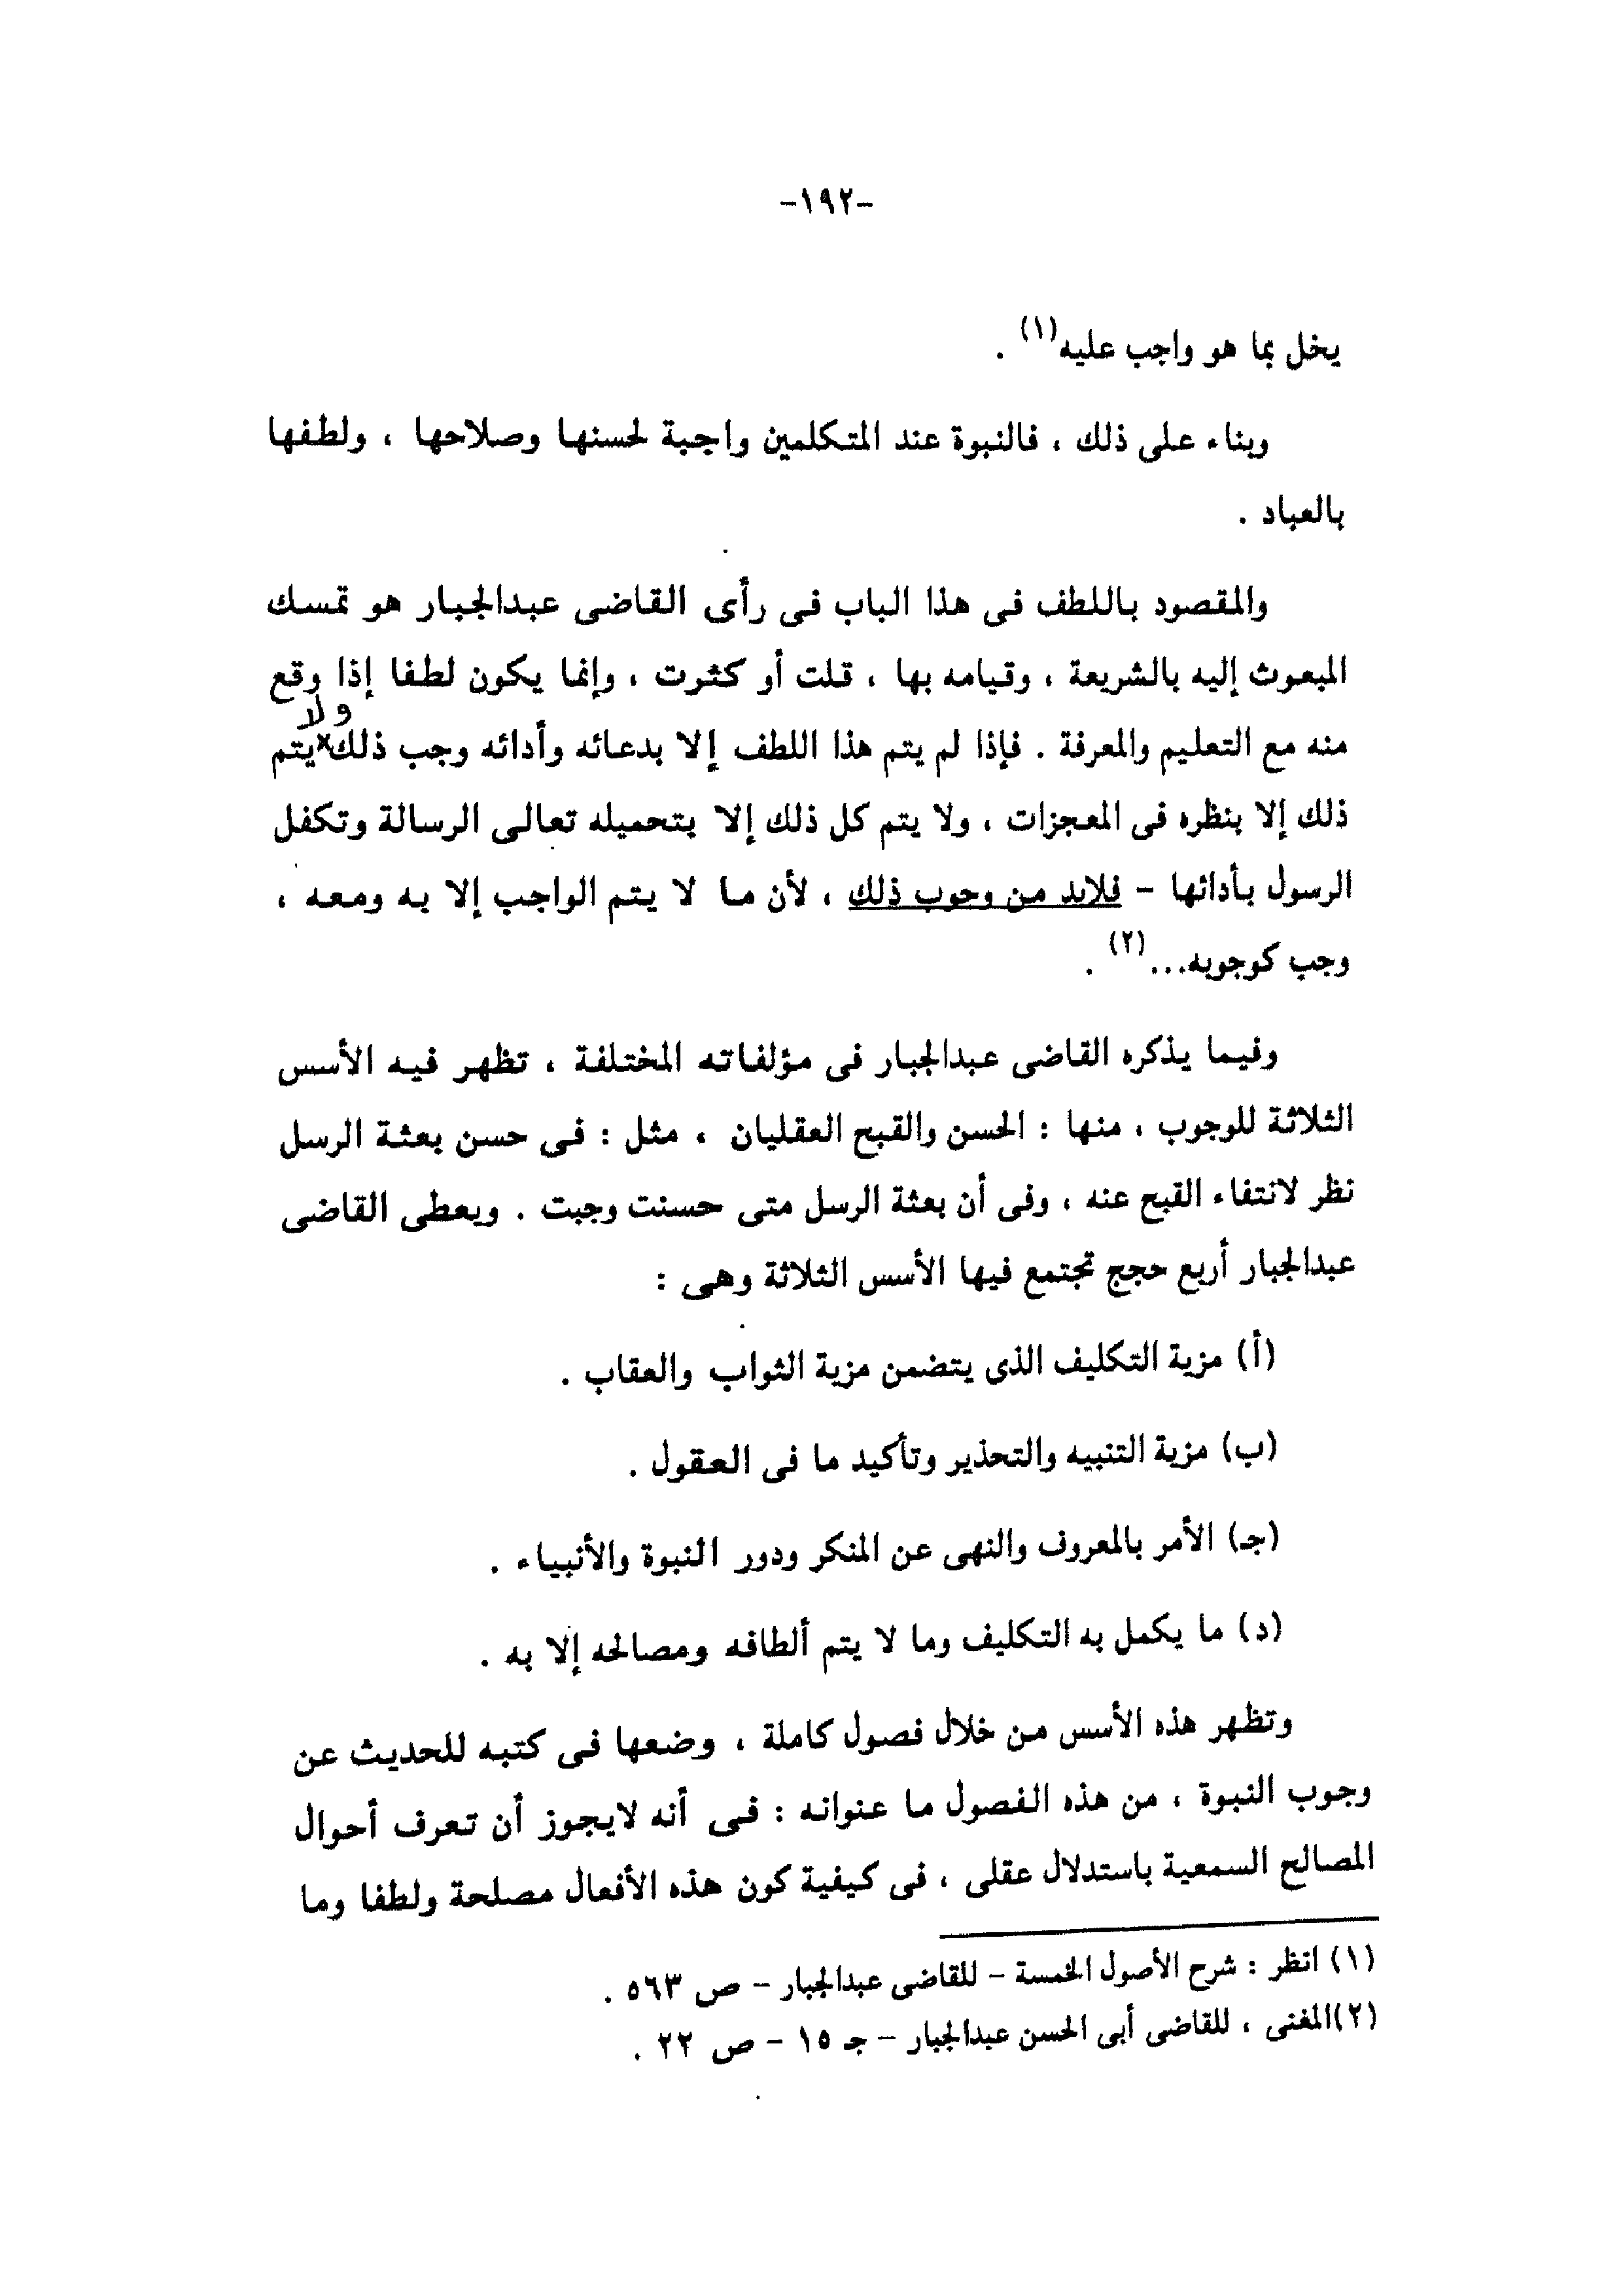 -١٩٢-
يخل بما هو واجب عليه(١) .
وبناء على ذلك ، فالنبوة عند المتكلمين واجبة لحسنها وصلاحها ، ولطفها
بالعباد .
والمقصود باللطف فى هذا الباب فى رأى القاضى عبدالجبار هو تمسك
المبعوث إليه بالشريعة ، وقيامه بها ، قلت أو كثرت ، وإنما يكون لطفا إذا وقع
ولا
منه مع التعليم والمعرفة . فإذا لم يتم هذا اللطف إلا بدعائه وأدائه وجب ذلك×يتم
ذلك إلا بنظره فى المعجزات ، ولا يتم كل ذلك إلا بتحميله تعالى الرسالة وتكفل
الرسول بأدائها - فلابد من وجوب ذلك ، لأن ما لا يتم الواجب إلا به ومعه ،
وجب كوجوبه...(٢) .
وفيما يذكره القاضى عبدالجبار فى مؤلفاته المختلفة ، تظهر فيه الأسس
الثلاثة للوجوب ، منها : الحسن والقبح العقليان ، مثل : فى حسن بعثة الرسل
نظر لانتفاء القبح عنه ، وفى أن بعثة الرسل متى حسنت وجبت . ويعطى القاضى
عبدالجبار أربع حجج تجتمع فيها الأسس الثلاثة وهى :
(أ) مزية التكليف الذى يتضمن مزية الثواب والعقاب .
(ب) مزية التنبيه والتحذير وتأكيد ما فى العقول .
(جـ) الأمر بالمعروف والنهى عن المنكر ودور النبوة والأنبياء .
(د) ما يكمل به التكليف وما لا يتم ألطافه ومصالحه إلا به .
وتظهر هذه الأسس من خلال فصول كاملة ، وضعها فى كتبه للحديث عن
وجوب النبوة ، من هذه الفصول ما عنوانه : فى أنه لايجوز أن تعرف أحوال
المصالح السمعية باستدلال عقلى ، فى كيفية كون هذه الأفعال مصلحة ولطفا وما
(١) انظر : شرح الأصول الخمسة - للقاضى عبدالجبار - ص ٥٦٣ .
(٢)المغنى ، للقاضى أبى الحسن عبدالجبار - جـ ١٥ - ص ٢٢ .